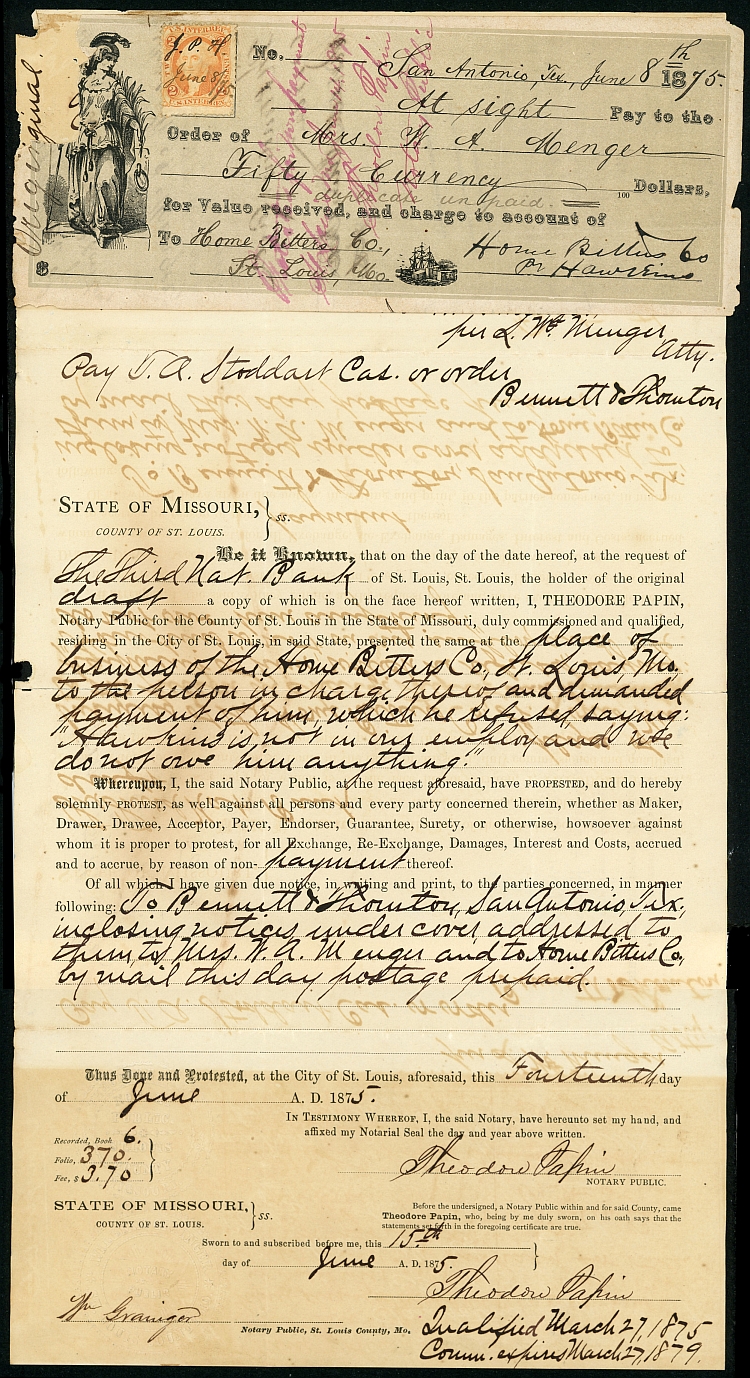 Original.
U.S. INTER. REV.
J. P. H.
June 8/75
U.S. INTER. REV.
No.
San Antonio, Tex, June 8th 1875.
At sight Pay to the
Order of Mrs. W. A. Menger
Fifty Currency 100 Dollars,
duplicate unpaid.
for Value received, and charge to account of
To Home Bitters Co., Home Bitters Co
St. Louis, Mo. Pr Hawkins
$
per L. Wm. Menger
Atty.
Pay T. A. Stoddart Cas. or order
Bennett & Thornton
STATE OF MISSOURI, } ss.
COUNTY OF ST. LOUIS.
Be it Known, that on the day of the date hereof, at the request of
The Third Nat. Bank of St. Louis, St. Louis, the holder of the original
draft a copy of which is on the face hereof written, I, THEODORE PAPIN,
Notary Public for the County of St. Louis in the State of Missouri, duly commissioned and qualified,
residing in the City of St. Louis, in said State, presented the same at the place of
business of the Home Bitters Co., St. Louis, Mo.
to the person in charge thereof and demanded
payment of him, which he refused saying:
"Hawkins is not in our employ and we
do not owe him anything."
Whereupon, I, the said Notary Public, at the request aforesaid, have PROPESTED, and do hereby
solemnly PROTEST, as well against all persons and every party concerned therein, whether as Maker,
Drawer, Drawee, Acceptor, Payer, Endorser, Guarantee, Surety, or otherwise, howsoever against
whom it is proper to protest, for all Exchange, Re-Exchange, Damages, Interest and Costs, accrued
and to accrue, by reason of non-payment thereof.
Of all which I have given due notice, in writing and print, to the parties concerned, in manner
following: To Bennett & Thornton, San Antonio, Tex,
inclosing notices under cover addressed to
them to Mrs. W. A. Menger and to Home Bitters Co.,
by mail this day postage prepaid.
Thus Done and Protested, at the City of St. Louis, aforesaid, this Fourteenth day
of June A. D. 1875.
IN TESTIMONY WHEREOF, I, the said Notary, have hereunto set my hand, and
affixed my Notarial Seal the day and year above written.
Recorded, Book 6.
Folio, 370.
Fee, $ 3.70
Theodore Papin
NOTARY PUBLIC.
STATE OF MISSOURI, } ss.
COUNTY OF ST. LOUIS.
Before the undersigned, a Notary Public within and for said County, came
Theodore Papin, who, being by me duly sworn, on his oath says that the
statements set forth in the foregoing certificate are true.
Sworn to and subscribed before me, this 15th
day of June A. D. 1875.
Theodore Papin
Wm Grainger
Notary Public, St. Louis County, Mo.
Qualified March 27, 1875
Comm. expires March 27, 1879.